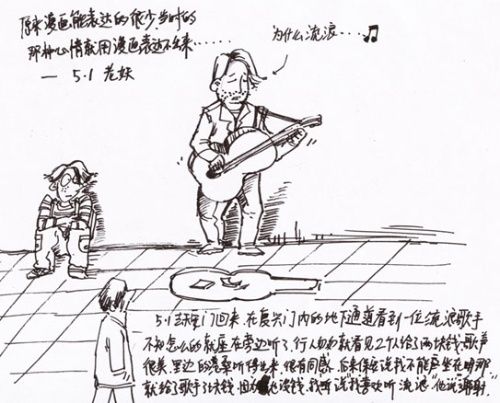 原来漫画能表达的很少,当时的
那种心情就用漫画表达不出来......
— 5.1 老妖
为什么流浪...
5.1 门回来,在复兴门内的地下通道看到一位流浪歌手
不知怎么的就座在旁边听了,行人匆匆就看见2个人给了两块钱.歌声
很美.里边的沧桑听得出来,很有同感.后来保安说我不能座在
就给了歌手 块钱 他没钱,我 说"我喜欢听流浪"他说"谢谢".